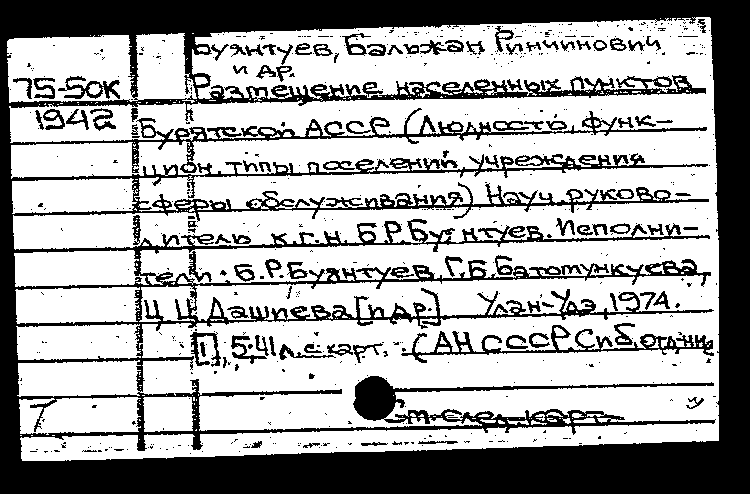 Буянтуев, Бальжан Ринчинович
и др.
75-50к Размещение населенных пунктов
1942 Бурятской АССР (Людность, функ-
цион. типы поселений, учреждения
сферы обслуживания) Науч. руково-
дитель к.г.н. Б.Р.Буянтуев. Исполни-
тели: Б.Р.Буянтуев, Г.Б.Батотункуева,
Ц.Ц.Дашиева [и др.]. Улан-Удэ, 1974.
[1], 5,41 л. с карт. (АН СССР. Сиб. отд-ние
См. след. карт.